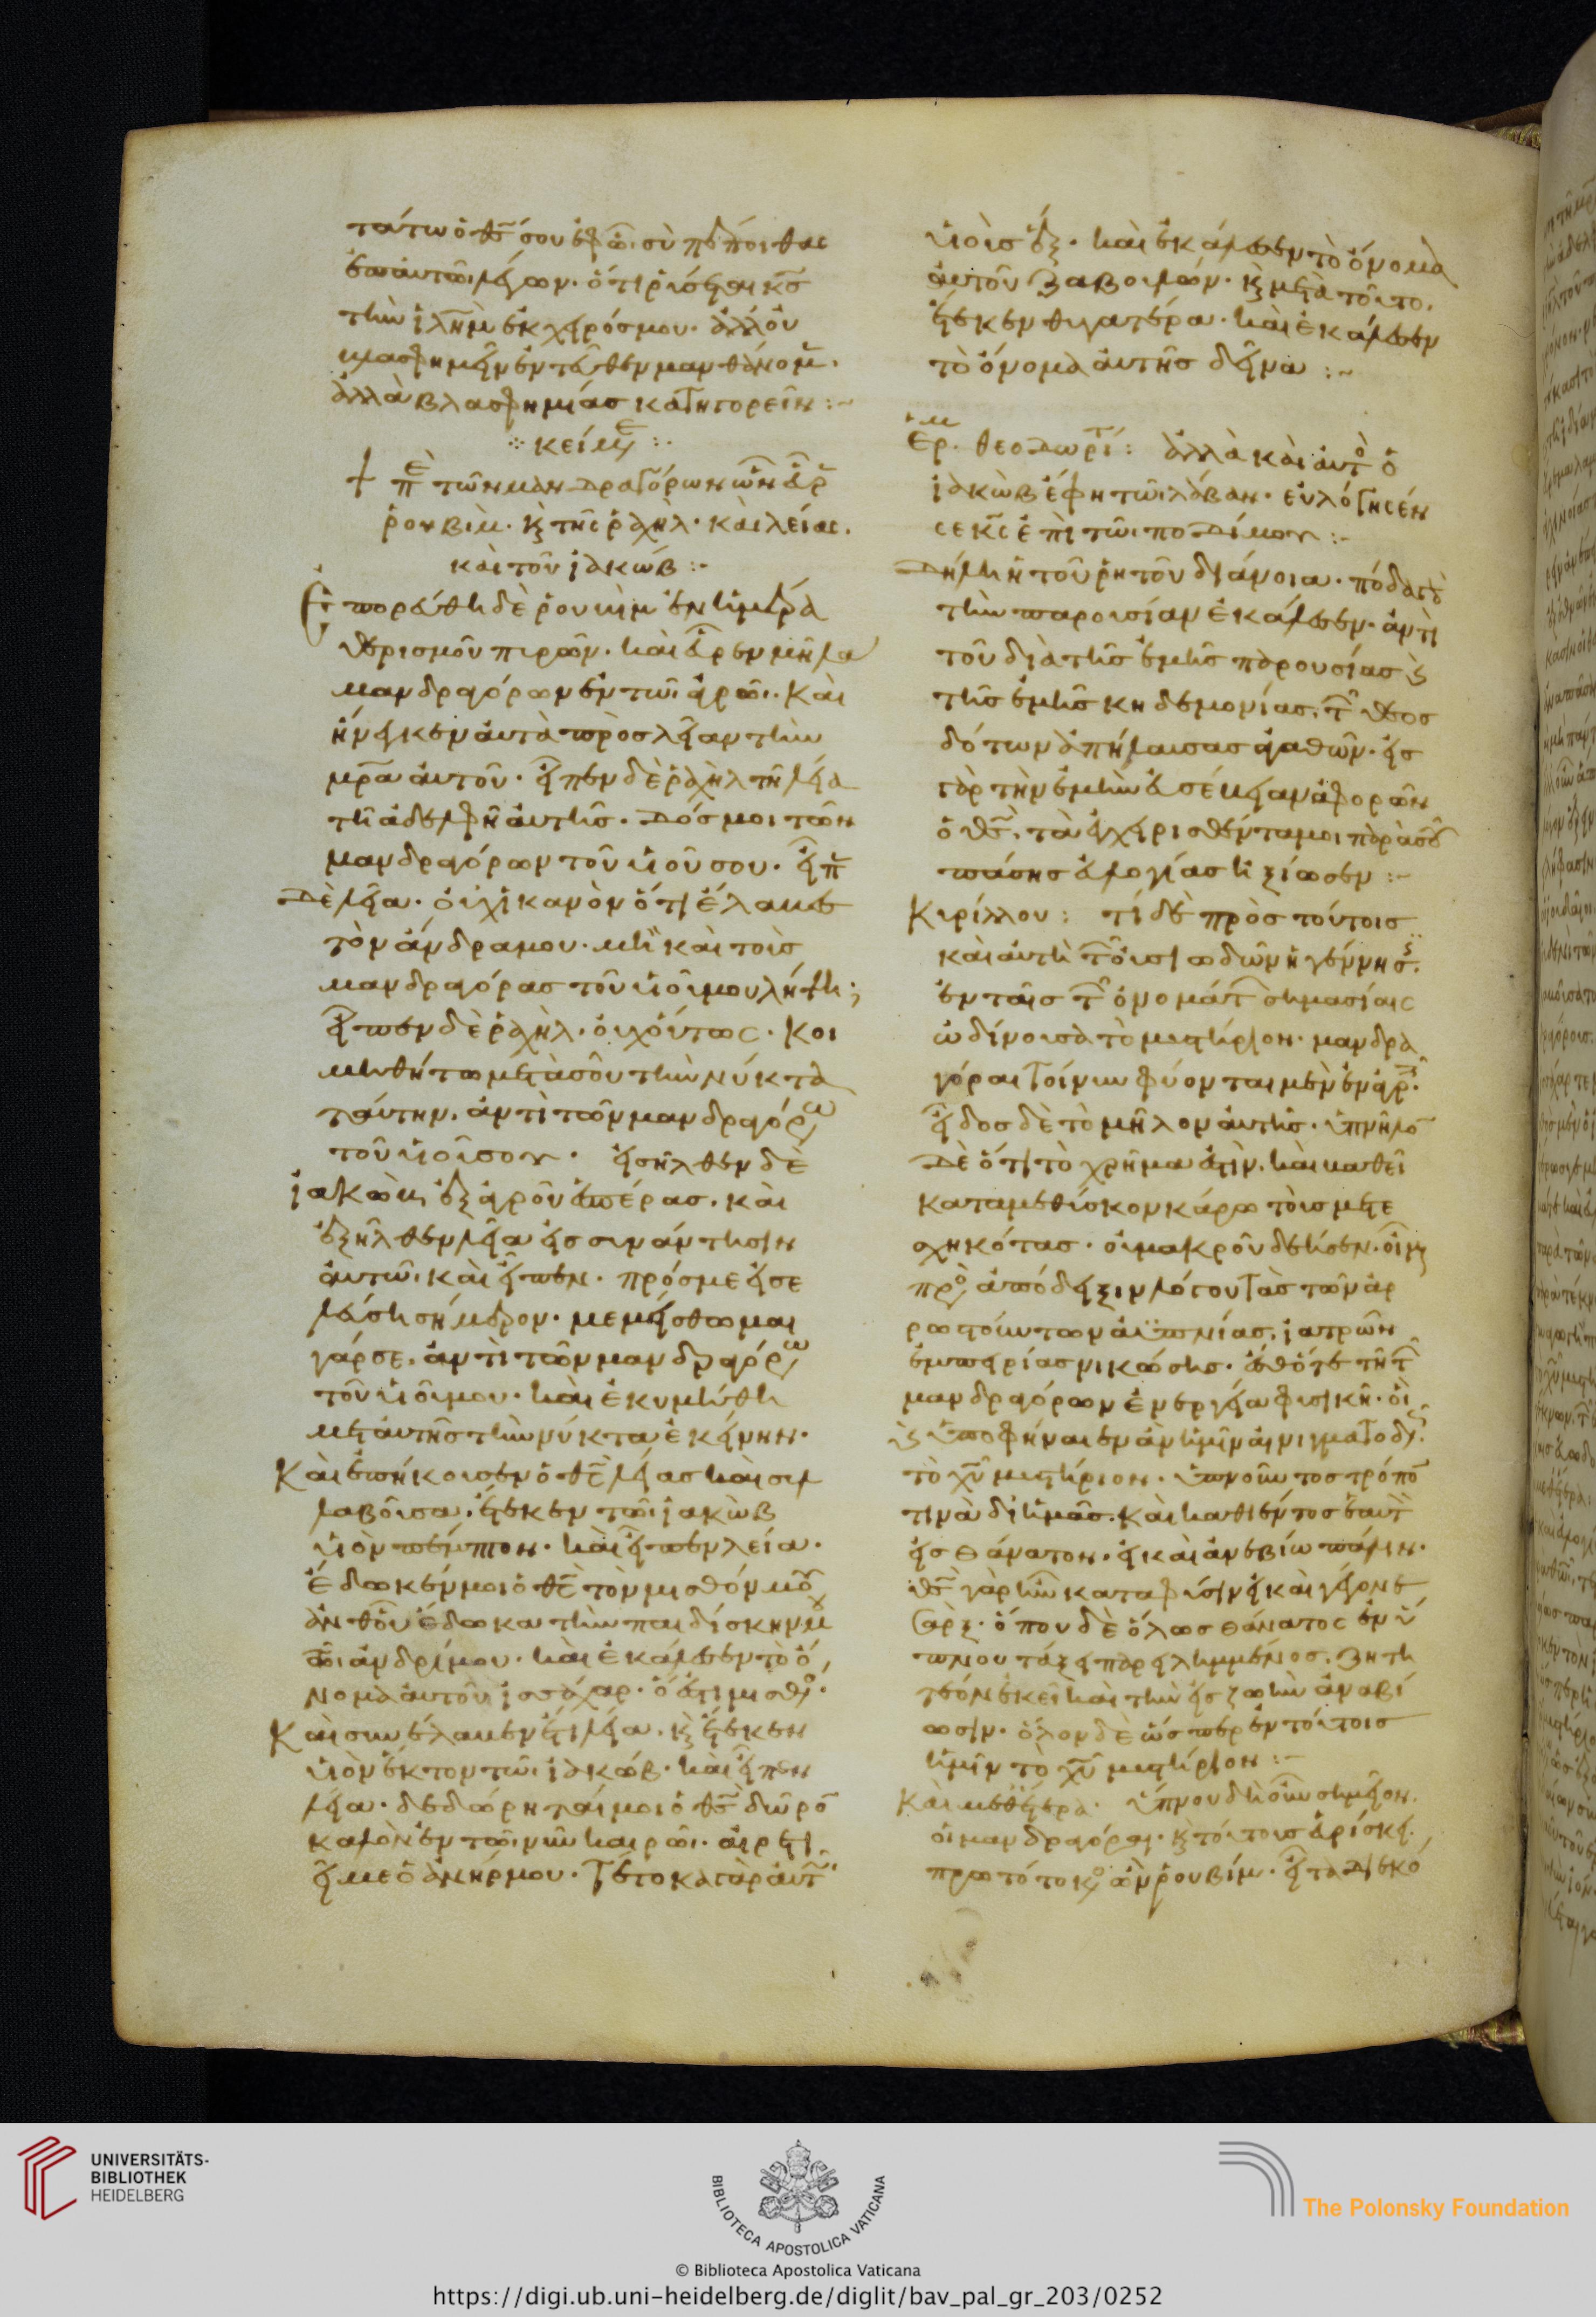 τάτω ὁ θς σου ἐφ ὧι σὺ πέποιθας
ἐπ αὐτῶι λέγων· ὅτι ῥύσεται κς
τὴν ἰλῆμ ἐκ χειρός μου· ἄλλον
βλασφημεῖν ἐντεῦθεν μανθάνομεν·
ἀλλὰ βλασφημίας κατηγορεῖν :~
κείμε :
+ πε τῶν μανδραγόρων ὧν εὗρ
ῥουβίμ· κ τῆς ῥαχὴλ· καὶ λείας·
καὶ τοῦ ἰακώβ :~
Επορεύθη δὲ ῥουβὶμ ἐν ἡμέρα
θερισμοῦ πυρῶν· καὶ εὗρεν μῆλα
μανδραγόρων ἐν τῶι ἀγρῶι· καὶ
ἤνεγκεν αὐτὰ πρὸς λείαν τὴν
μρα αὐτοῦ· εἶπεν δὲ ῥαχὴλ τῆ λεία
τῆ ἀδελφῆ αὐτῆς· Δός μοι τῶν
μανδραγόρων τοῦ υἱοῦ σου· εἶπ
Δὲ λεία· οὐχ ἱκανὸν ὅτι ἔλαβε
τὸν ἄνδρα μου· μὴ καὶ τοὺς
μανδραγόρας τοῦ υἱοῦ μου λήψη ;
εἶπεν δὲ ῥαχὴλ· οὐχ οὕτως· κοι
μηθήτω μετὰ σοῦ τὴν νύκτα
ταύτην· ἀντὶ τῶν μανδραγόρω
τοῦ υἱοῦ σου· εἰσῆλθεν δὲ
ἰακὼβ ἐξ ἀγροῦ ἑσπέρας· καὶ
ἐξῆλθεν λεία εἰς συνάντησιν
αὐτῶ· καὶ εἶπεν· πρός με εἰσε
λεύση σήμερον· μεμίσθωμαι
γάρ σε· ἀντὶ τῶν μανδραγόρω
τοῦ υἱοῦ μου· καὶ ἐκοιμήθη
μετ αὐτῆς τὴν νύκτα ἐκείνην·
Καὶ ἐπήκουσεν ὁ θς λείας καὶ συλ
λαβοῦσα· ἔτεκεν τῶι ἰακὼβ
υἱὸν πέμπτον· καὶ εἶπεν λεία·
ἔδωκέν μοι ὁ θς τὸν μισθόν μου
ἀνθ οὗ ἔδωκα τὴν παιδίσκην μ
τῶι ἀνδρί μου· καὶ ἐκάλεσεν τὸ ὄ
νομα αὐτοῦ ἰσσάχαρ· ὅ ἐστι μισθό·
Καὶ συνέλαβεν ἔτι λεία· κ ἔτεκεν
υἱὸν ἕκτον τῶι ἰακώβ· καὶ εἶπεν
λεία· δεδώρηταί μοι ὁ θς δῶρον
καλὸν ἐν τῶι νῦν καιρῶι· αἱρετι
εῖ με ὁ ἀνήρ μου· τέτοκα γὰρ αὐτ
υἱοὺς ἕξ· καὶ ἐκάλεσεν τὸ ὄνομα
αὐτοῦ ζαβουλών· κ μετὰ τοῦτο·
ἔτεκεν θυγατέρα· καὶ ἐκάλεσεν
τὸ ὄνομα αὐτῆς δεῖνα :~
Ερμ· θεοδωρίτ : ἀλλὰ καὶ αὐτὸ ὁ
ἰακὼβ ἔφη τῶι λάβαν· εὐλόγησέν
σε κς ἐπὶ τῶι ποδί μου :~
Δήλη ἡ τοῦ ῥητοῦ διάνοια· πόδα γὰ
τὴν παρουσίαν ἐκάλεσεν· ἀντὶ
τοῦ διὰ τῆς ἐμῆς παρουσίας κ
τῆς ἐμῆς κηδεμονίας· τ θεος
δότων ἀπήλαυσας ἀγαθῶν· εἰς
γὰρ τὴν ἐμὴν εὐσέβειαν ἀφορῶν
ὁ θς· τὰ ἐγχειρισθέντα μοι παρὰ σοῦ
πάσης εὐλογίας ἠξίωσεν :~
Κυρίλλου : τί δὲ πρὸς τούτοις
καὶ αὐτὴ τ οἱσῶδῶν ἡ γέννησ·
ἐν ταῖς τ ὀνομάτ σημασίαις
ὠδίνουσα τὸ μυστήριον· μανδρα
γόραι τοίνυν φύονται μὲν ἐν ἀγρ·
εἶδος δὲ τὸ μῆλον αὐτῆς· ὑπνηλὸ
Δὲ ὅτι τὸ χρῆμα ἐστὶν· καὶ καθεῖ
καταμεθύσκον κάρω τοὺς μετε
σχηκότας· οὐ μακροῦ δεήσεν· οἶμ
πρὸ ἀπόδειξιν λόγου τὰς τῶν ἀρ
ρωστούντων ἀϋπνίας· ἰατρῶν
ἐμπειρίας νικώσης· ἐσθότε τῆ τ
μανδραγόρων ἐνεργεία φυσικῆ· οἳ
κ ὑποφήναιεν ἂν ἡμῖν αἰνιγματωδ·
τὸ χυ μυστήριον· ὑπνοῦντος τρόπο
τινὰ δι ἡμᾶς· καὶ καθιέντος ἑαυτ
εἰς θάνατον· εἰ καὶ ἀνεβίω πάλιν·
θς γὰρ ἦν κατὰ φύσιν εἰ καὶ γέγονε
σάρξ· ὅπου δὲ ὅλως θάνατος ἐν ὕ
πνου τάξει παρειλημμένος· ζητη
τέον ἐκεῖ καὶ τὴν εἰς ζωὴν ἀναβί
ωσιν· ὅλον δὲ ὥσπερ ἐν τούτοις
ἡμῖν τὸ χυ μυστήριον :~
Καὶ μεθέτερα· ὕπνου δὴ οὖν σημεῖον·
οἱ μανδραγόραι· κ τούτοις εὑρίσκει·
πρωτότοκο ὢν ῥουβίμ· εἶτα Διεκό
UNIVERSITÄTS-
BIBLIOTHEK
HEIDELBERG
BIBLIOTECA APOSTOLICA VATICANA
The Polonsky Foundation
© Biblioteca Apostolica Vaticana
https://digi.ub.uni-heidelberg.de/diglit/bav_pal_gr_203/0252